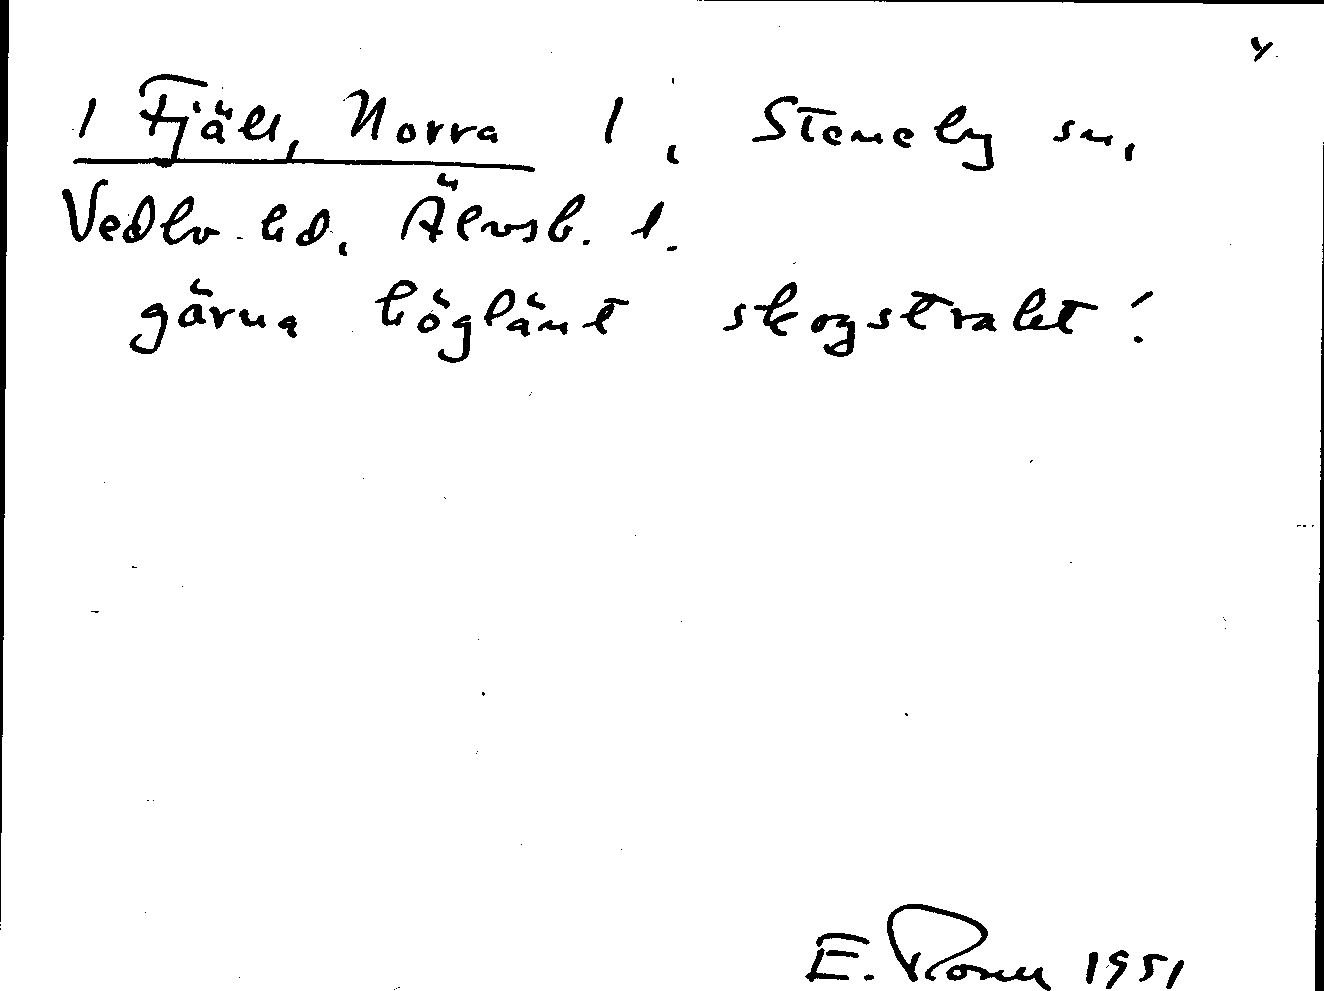 y
/ Fjäll, Norra /, Steneby sn,
Vedbo hd, Älvsb. l.
gärna höglänt skogstrakt!
E. 1951